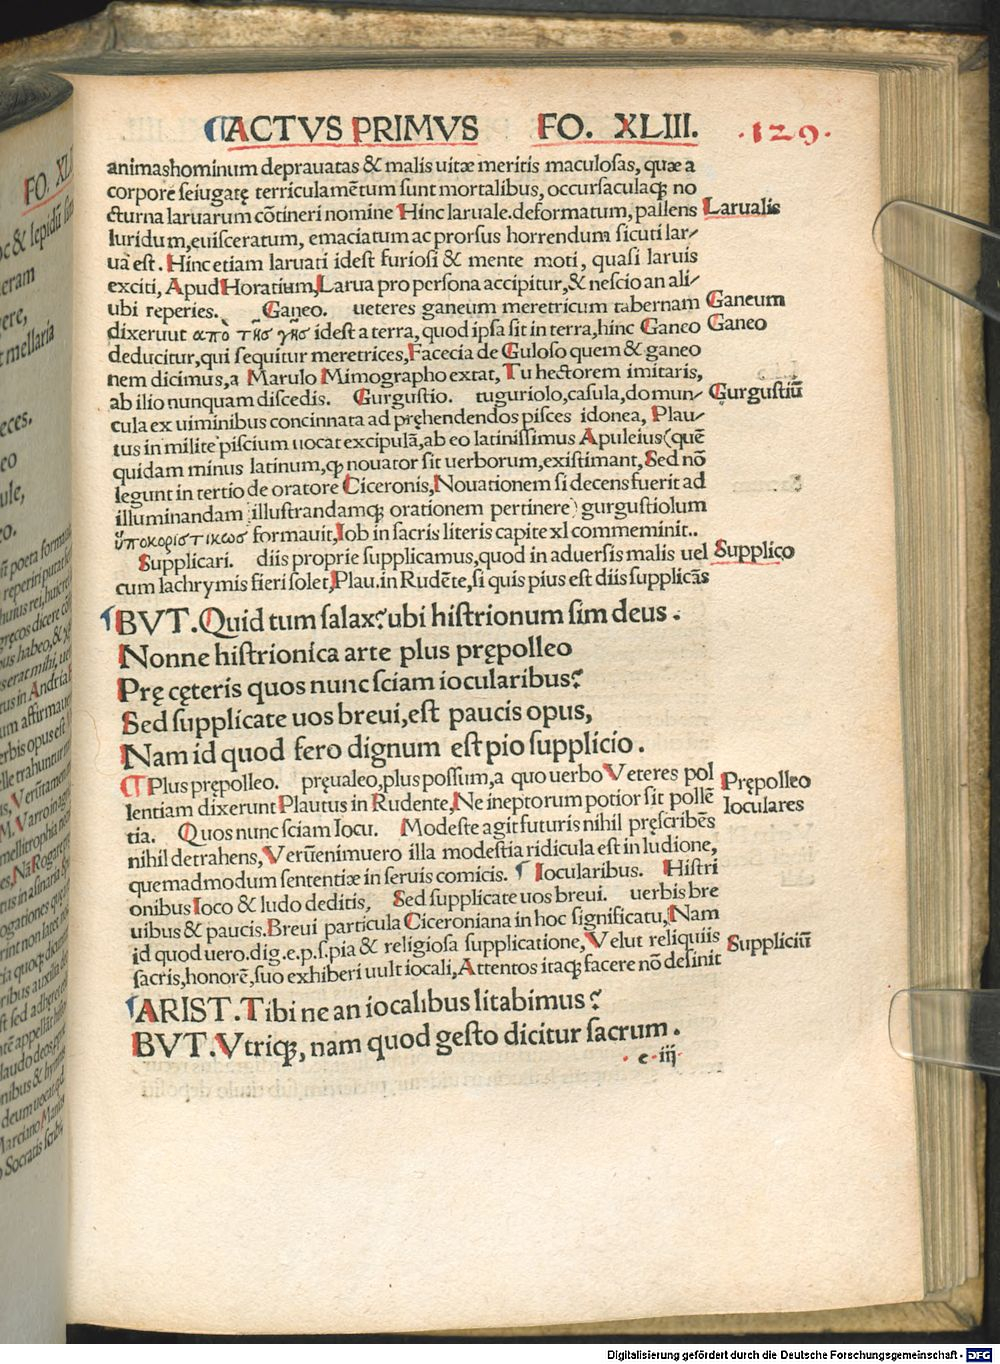 ACTVS PRIMVS FO. XLIII. ·129·
animashominum deprauatas & malis uitæ meritis maculosas, quæ a
corpore seiugatę terriculamētum sunt mortalibus, occursaculaq; no
cturna laruarum cōtineri nomine Hinc laruale.deformatum, pallens Larualis
luridum,euisceratum, emaciatum ac prorsus horrendum sicuti lar⸗
ua est. Hinc etiam laruati idest furiosi & mente moti, quasi laruis
exciti, Apud Horatium, Larua pro persona accipitur,& nescio an ali⸗
ubi reperies. Ganeo. ueteres ganeum meretricum tabernam Ganeum
dixeruut ἀπὸ τῆσ γῆσ idest a terra, quod ipsa sit in terra,hinc Ganeo Ganeo
deducitur,qui sequitur meretrices,Facecia de Guloso quem & ganeo
nem dicimus,a Marulo Mimographo extat, Tu hectorem imitaris,
ab ilio nunquam discedis. Gurgustio. tuguriolo,casula,domun⸗ Gurgustiū
cula ex uiminibus concinnata ad pręhendendos pisces idonea, Plau⸗
tus in milite piscium uocat excipulā,ab eo latinissimus Apuleius(quē
quidam minus latinum,q; nouator sit uerborum,existimant,Sed nō
legunt in tertio de oratore Ciceronis,Nouationem si decens fuerit ad
illuminandam illustrandamq; orationem pertinere) gurgustiolum
ὑποκοριστικωσ formauit,Iob in sacris literis capite xl commeminit..
Supplicari. diis proprie supplicamus,quod in aduersis malis uel Supplico
cum lachrymis fieri solet,Plau.in Rudēte,si quis pius est diis supplicās
BVT. Quid tum salax? ubi histrionum sim deus.
Nonne histrionica arte plus prępolleo
Prę cęteris quos nunc sciam iocularibus?
Sed supplicate uos breui,est paucis opus,
Nam id quod fero dignum est pio supplicio.
Plus prępolleo. pręualeo,plus possum,a quo uerbo Veteres pol Prępolleo
lentiam dixerunt Plautus in Rudente,Ne ineptorum potior sit pollē Ioculares
tia. Quos nunc sciam Iocu. Modeste agit futuris nihil pręscribēs
nihil detrahens,Verūenimuero illa modestia ridicula est in ludione,
quemadmodum sententiæ in seruis comicis. Iocularibus. Histri
onibus Ioco & ludo deditis, Sed supplicate uos breui. uerbis bre
uibus & paucis.Breui particula Ciceroniana in hoc significatu,Nam
id quod uero.dig.e.p.s.pia & religiosa supplicatione,Velut reliquiis Suppliciū
sacris,honorē,suo exhiberi uult iocali,Attentos itaq; facere nō desinit
ARIST. Tibi ne an iocalibus litabimus?
BVT. Vtriq;, nam quod gesto dicitur sacrum.
e iij
Digitalisierung gefördert durch die Deutsche Forschungsgemeinschaft - DFG